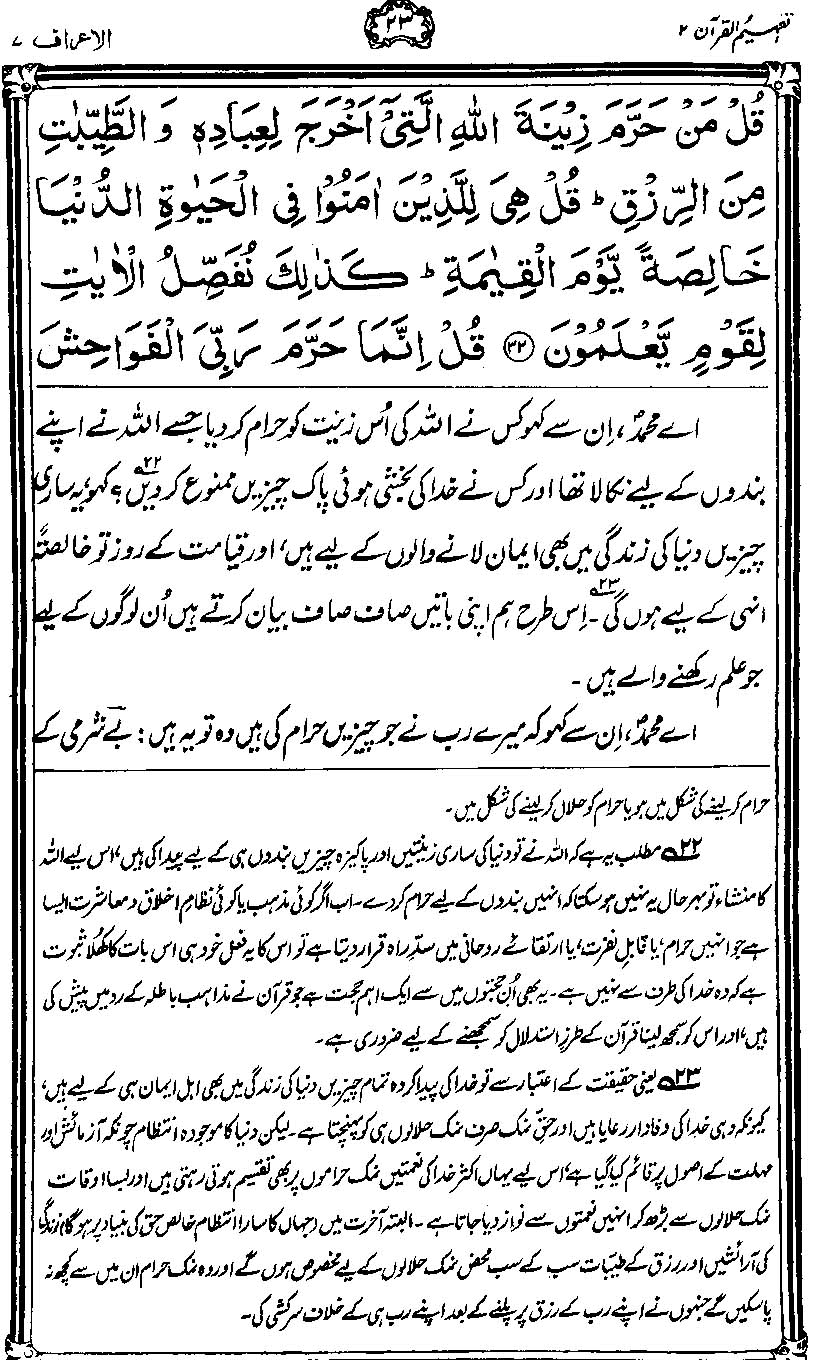 تفہیم القرآن ۲
۲۳
الاعراف ۷
قُلْ مَنْ حَرَّمَ زِيْنَةَ اللّٰهِ الَّتِيْٓ اَخْرَجَ لِعِبَادِهٖ وَ الطَّيِّبٰتِ
مِنَ الرِّزْقِ ؕ قُلْ هِيَ لِلَّذِيْنَ اٰمَنُوْا فِي الْحَيٰوةِ الدُّنْيَا
خَالِصَةً يَّوْمَ الْقِيٰمَةِ ؕ كَذٰلِكَ نُفَصِّلُ الْاٰيٰتِ
لِقَوْمٍ يَّعْلَمُوْنَ ﴿۳۲﴾ قُلْ اِنَّمَا حَرَّمَ رَبِّيَ الْفَوَاحِشَ
اے محمدؐ، اِن سے کہو کس نے اللہ کی اُس زینت کو حرام کر دیا جسے اللہ نے اپنے
بندوں کے لیے نکالا تھا اور کس نے خدا کی بخشی ہوئی پاک چیزیں ممنوع کر دیں؟۲۲ کہو، یہ ساری
چیزیں دنیا کی زندگی میں بھی ایمان لانے والوں کے لیے ہیں، اور قیامت کے روز تو خالصتہً
انہی کے لیے ہوں گی۲۳۔ اِس طرح ہم اپنی باتیں صاف صاف بیان کرتے ہیں اُن لوگوں کے لیے
جو علم رکھنے والے ہیں۔
اے محمدؐ، اِن سے کہو کہ میرے رب نے جو چیزیں حرام کی ہیں وہ تو یہ ہیں: بے شرمی کے
حرام کر لینے کی شکل میں ہو یا حرام کو حلال کر لینے کی شکل میں۔
۲۲؎ مطلب یہ ہے کہ اللہ نے تو دنیا کی ساری زینتیں اور پاکیزہ چیزیں بندوں ہی کے لیے پیدا کی ہیں، اس لیے اللہ
کا منشاء تو بہر حال یہ نہیں ہو سکتا کہ انہیں بندوں کے لیے حرام کر دے۔ اب اگر کوئی مذہب یا کوئی نظامِ اخلاق و معاشرت ایسا
ہے جو انہیں حرام، یا قابلِ نفرت، یا ارتقائے روحانی میں سدِّ راہ قرار دیتا ہے تو اس کا یہ فعل خود ہی اس بات کا کھلا ثبوت
ہے کہ وہ خدا کی طرف سے نہیں ہے۔ یہ بھی اُن حجتوں میں سے ایک اہم حجت ہے جو قرآن نے مذاہب باطلہ کے رد میں پیش کی
ہیں، اور اس کو سمجھ لینا قرآن کے طرزِ استدلال کو سمجھنے کے لیے ضروری ہے۔
۲۳؎ یعنی حقیقت کے اعتبار سے تو خدا کی پیدا کردہ تمام چیزیں دنیا کی زندگی میں بھی اہل ایمان ہی کے لیے ہیں،
کیونکہ وہی خدا کی وفادار رعایا ہیں اور حقِّ نمک صرف نمک حلالوں ہی کو پہنچتا ہے۔ لیکن دنیا کا موجودہ انتظام چونکہ آزمائش اور
مہلت کے اصول پر قائم کیا گیا ہے، اس لیے یہاں اکثر خدا کی نعمتیں نمک حراموں پر بھی تقسیم ہوتی رہتی ہیں اور بسا اوقات
نمک حلالوں سے بڑھ کر انہیں نعمتوں سے نواز دیا جاتا ہے۔ البتہ آخرت میں (جہاں کا سارا انتظام خالص حق کی بنیاد پر ہو گا) زندگی
کی آرائشیں اور رزق کے طیّبات سب کے سب محض نمک حلالوں کے لیے مخصوص ہوں گے اور وہ نمک حرام ان میں سے کچھ نہ
پا سکیں گے جنہوں نے اپنے رب کے رزق پر پلنے کے بعد اپنے رب ہی کے خلاف سرکشی کی۔